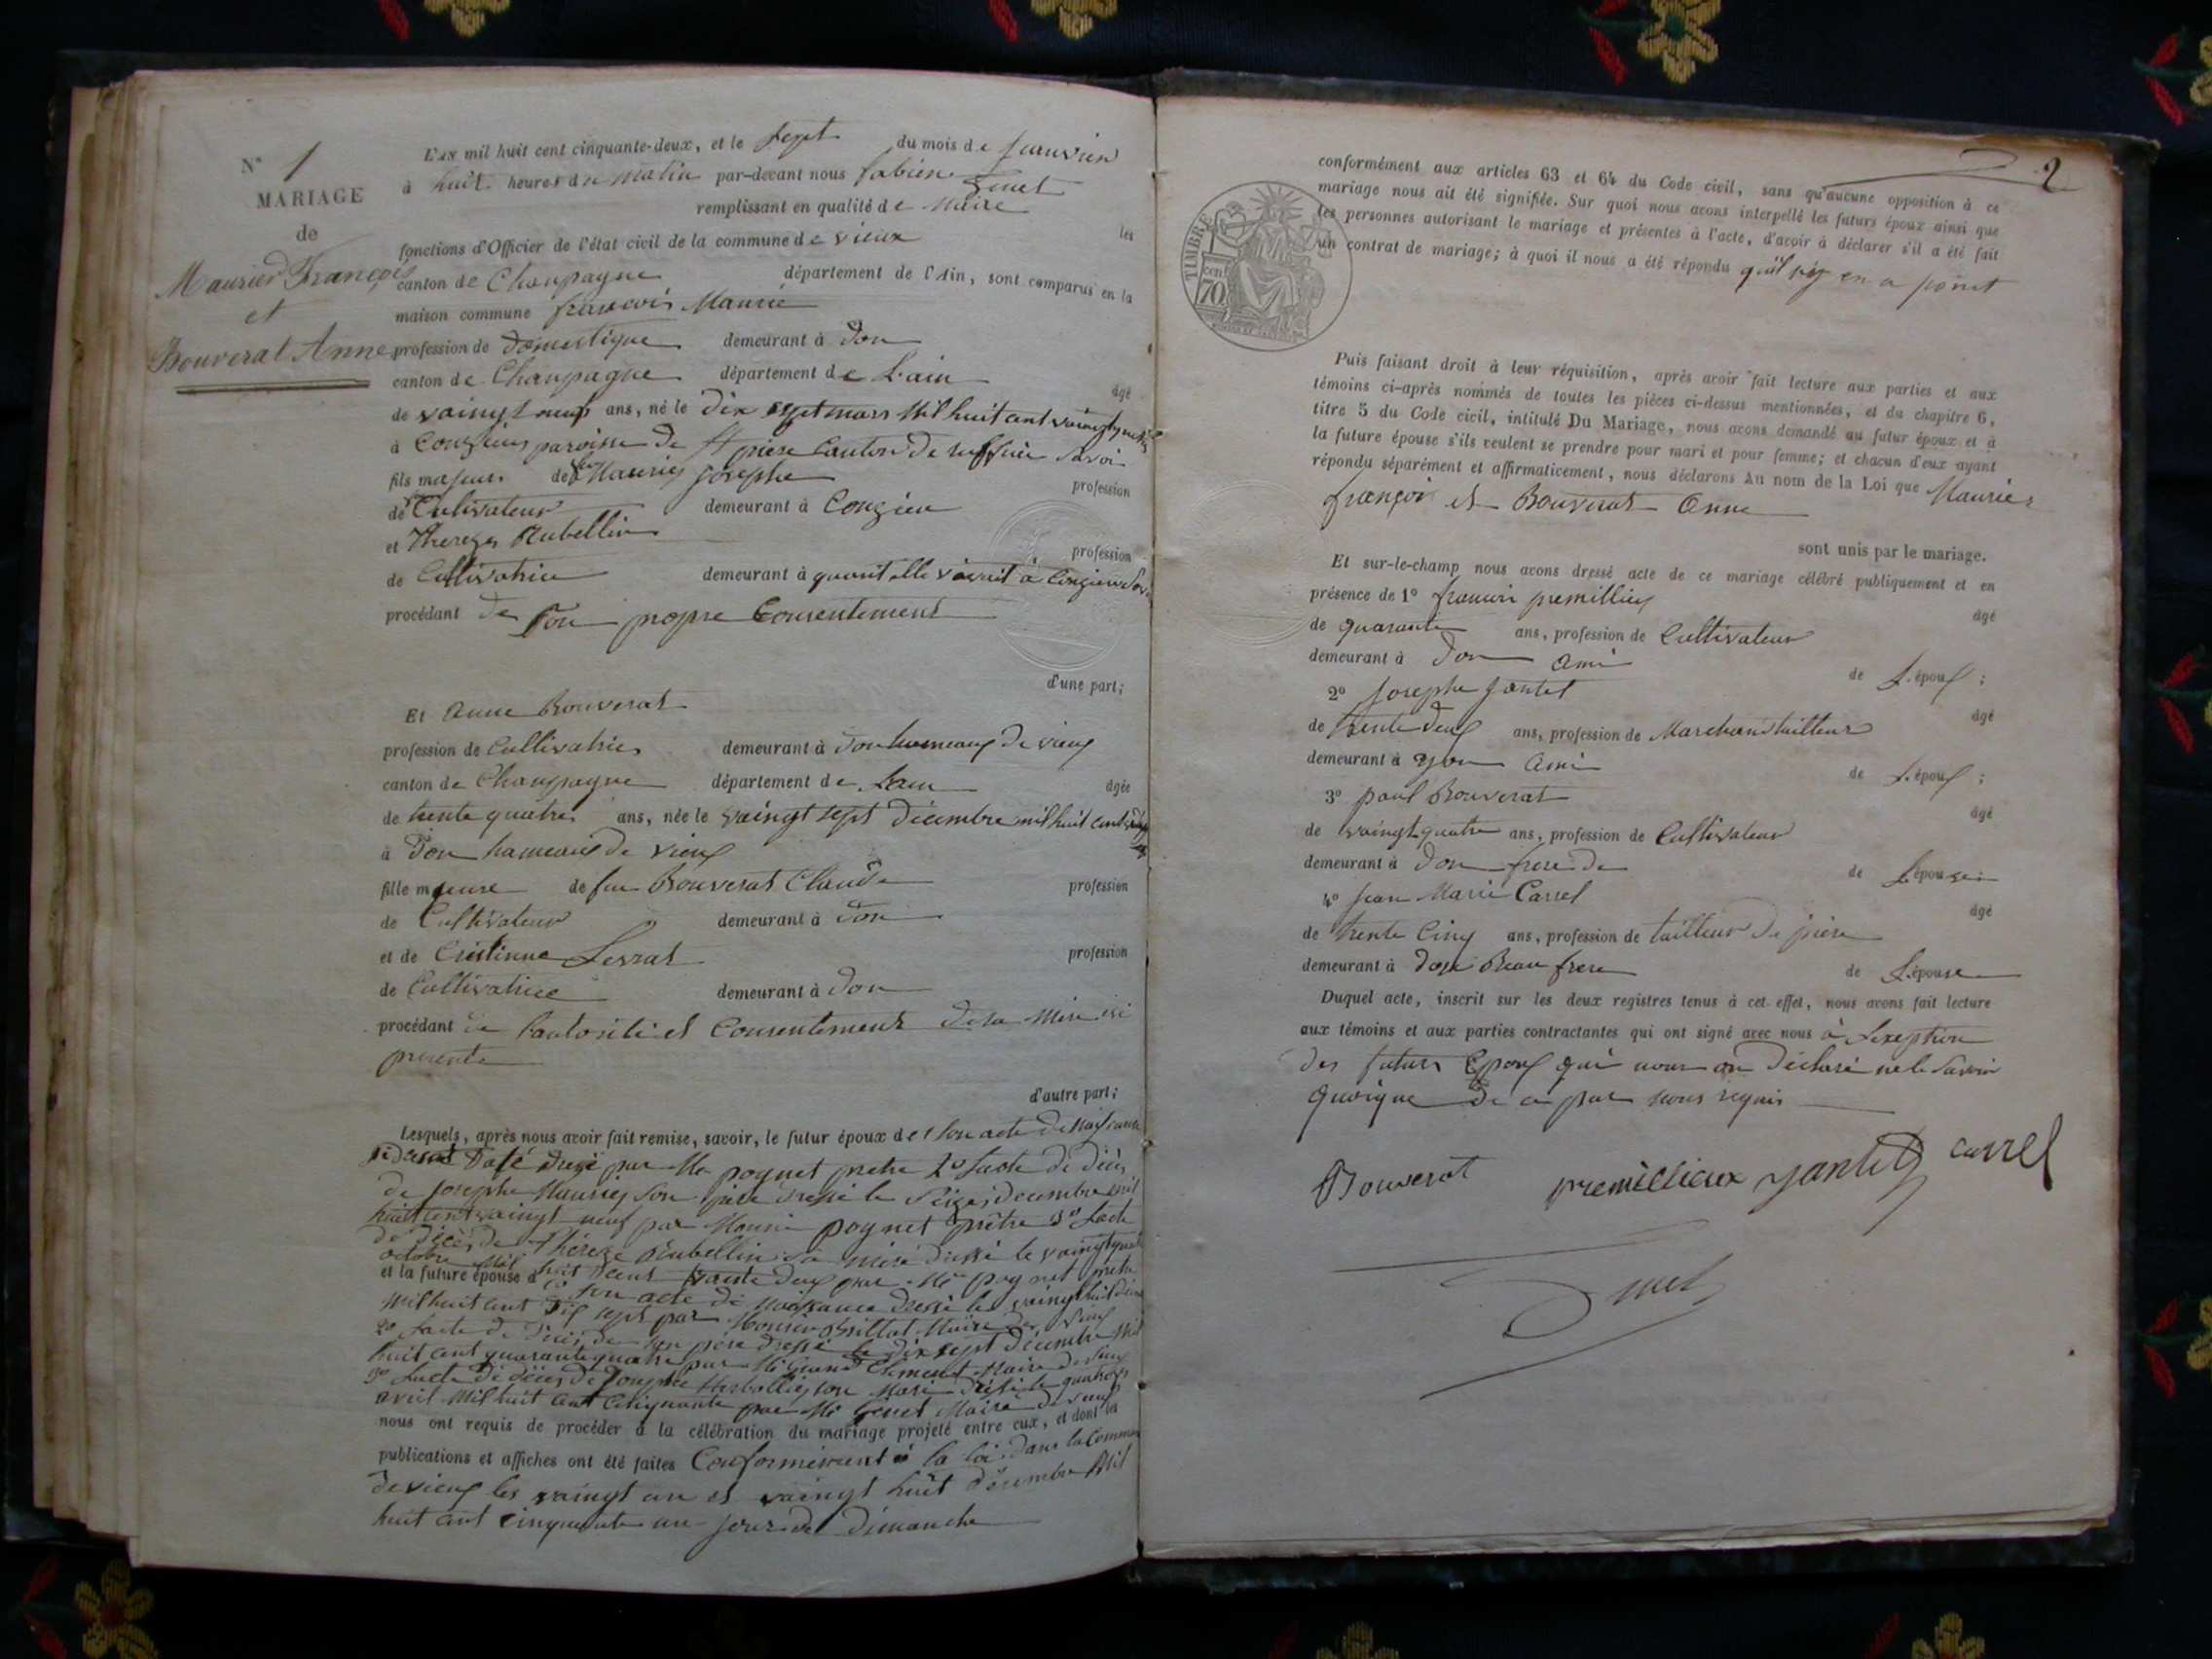 N° 1
MARIAGE
de
Maurier François
et
Bouverat Anne
L'AN mil huit cent cinquante-deux, et le sept du mois de Janvier
à huit heures du matin par-devant nous fabien Genet
remplissant en qualité de Maire les
fonctions d'Officier de l'état civil de la commune de vieux
canton de Champagne département de l'Ain, sont comparus en la
maison commune françois Maurié
profession de Domestique demeurant à Don
canton de Champagne département de L'ain âgé
de vaingt neuf ans, né le Dix sept mars Mil huit cent vaingt
à Conzieu paroisse de St piere Canton de Ruffieu Savoi
fils majeur de feu Mauriez Josephe profession
de Cultivateur demeurant à Conzieu
et Thereze Rubellin profession
de Cultivatrice demeurant à quant elle vivait à Conzieu
procédant de Son propre Consentement
d'une part;
Et Anne Bouverat
profession de Cultivatrice demeurant à Don hameaux de vieux
canton de Champagne département de Lain âgée
de trente quatre ans, née le vaingt sept Décembre mil huit cent
à Don hameaux de vieux
fille majeure de feu Bouverat Claude profession
de Cultivateur demeurant à Don
et de Cristinne Levrat profession
de Cultivatrice demeurant à Don
procédant de Lautorité et Consentement de sa Mère ici
presente
d'autre part;
Lesquels, après nous avoir fait remise, savoir, le futur époux de 1° Son acte de Naissance
Daté Dressé par Mr pognet pretre 2° Lacte de décès
de Josephe Mauriez Son père Dressé le Seize decembre mil
huit cent vaingt neuf par Monsieur pognet prêtre 3° Lacte
de décès de Théreze Rubellin Sa mère dressé le
octobre Mil huit Cent trente deux par Mr pognet prêtre
et la future épouse de 1° Son acte de Naissance Dressé le vaingt huit
Mil huit cent Dix sept par Monsieur Brillat Maire de Vieux
2° Lacte de Décès de Son père Dressé le dix sept Décembre Mil
huit cent quarante quatre par Mr Grand Clement Maire de vieux
3° Lacte de décès de Josephe son Mari Dressé le quatorze
avril Mil huit cent Cinquante par Mr Genet Maire de vieux
nous ont requis de procéder à la célébration du mariage projeté entre eux, et dont les
publications et affiches ont été faites Conformément à la loi dans la Commune
de vieux les vaingt un et vaingt huit Décembre Mil
huit cent cinquante un jour de Dimanche
2
TIMBRE
70
conformément aux articles 63 et 64 du Code civil, sans qu'aucune opposition à ce
mariage nous ait été signifiée. Sur quoi nous avons interpellé les futurs époux ainsi que
les personnes autorisant le mariage et présentes à l'acte, d'avoir à déclarer s'il a été fait
un contrat de mariage; à quoi il nous a été répondu qu'il niy en a point
Puis faisant droit à leur réquisition, après avoir fait lecture aux parties et aux
témoins ci-après nommés de toutes les pièces ci-dessus mentionnées, et du chapitre 6,
titre 5 du Code civil, intitulé Du Mariage, nous avons demandé au futur époux et à
la future épouse s'ils veulent se prendre pour mari et pour femme; et chacun d'eux ayant
répondu séparément et affirmativement, nous déclarons Au nom de la Loi que Mauriez
françois et Bouverat Anne
sont unis par le mariage.
Et sur-le-champ nous avons dressé acte de ce mariage célébré publiquement et en
présence de 1° francois premillieux âgé
de quarante ans, profession de Cultivateur
demeurant à Don Ami de L'époux ;
2° Josephe Jantet âgé
de trente Deux ans, profession de Marchand tailleur
demeurant à yon Ami de L'époux ;
3° paul Bouverat âgé
de vaingt quatre ans, profession de Cultivateur
demeurant à Don frere de de L'épouse
4° Jean Marie Carrel âgé
de trente Cinq ans, profession de tailleur de piere
demeurant à Don Beau frere de L'épouse
Duquel acte, inscrit sur les deux registres tenus à cet effet, nous avons fait lecture
aux témoins et aux parties contractantes qui ont signé avec nous à Lexeption
des futurs Epoux qui nous on Déclaré ne le Savoir
quoique de ce par nous requis
Bouverat premillieux Jantet carrel
Genet